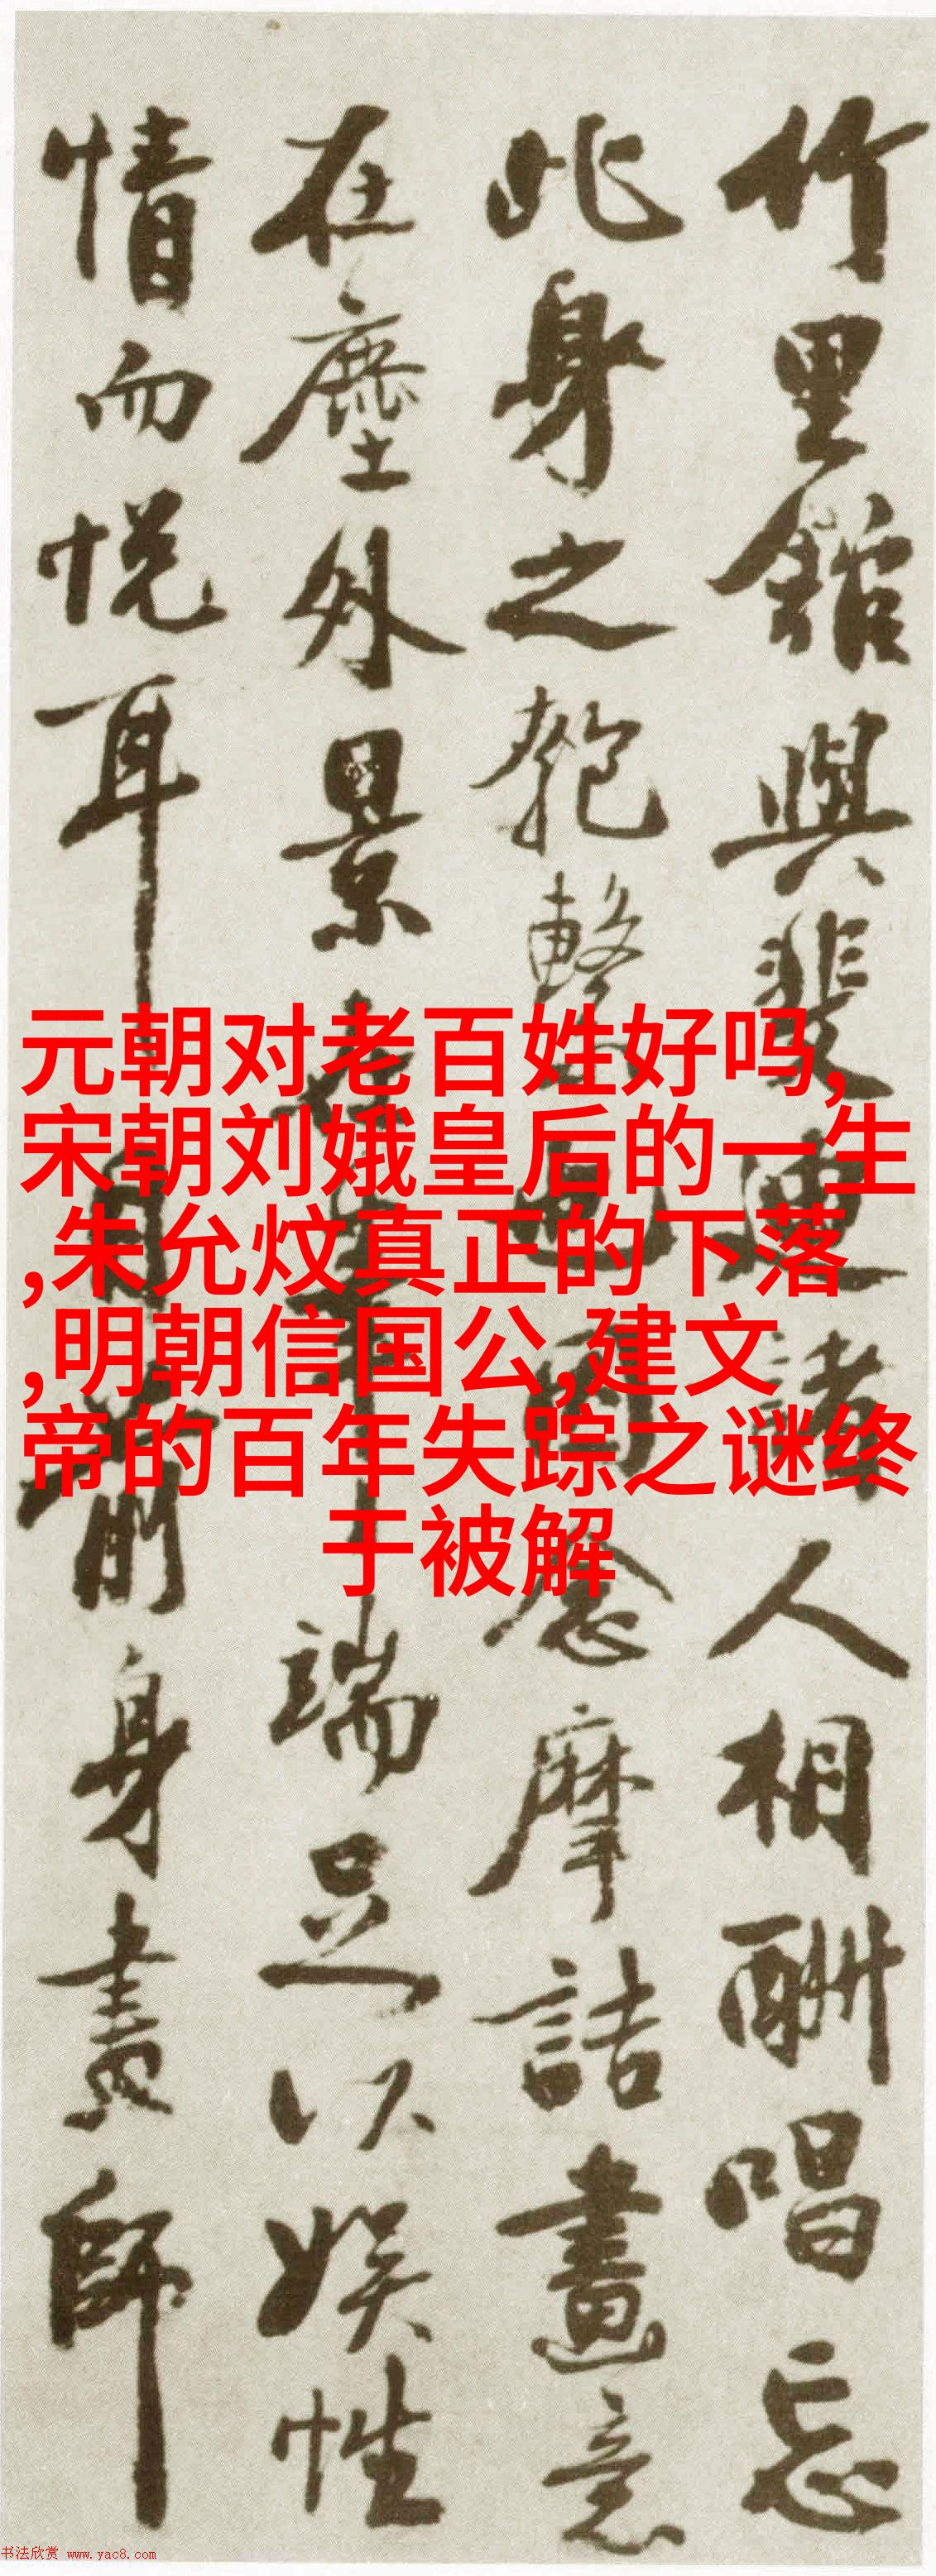 竹里館與裴迪諸人相酬唱忘
此身之匏繫也因念摩詰畫意
在塵外景
端足以娛性
情而悅耳
前身畫師
元朝对老百姓好吗,
宋朝刘娥皇后的一生
,朱允炆真正的下落
,明朝信国公,建文
帝的百年失踪之谜终
于被解
书法欣赏 www.yac8.com